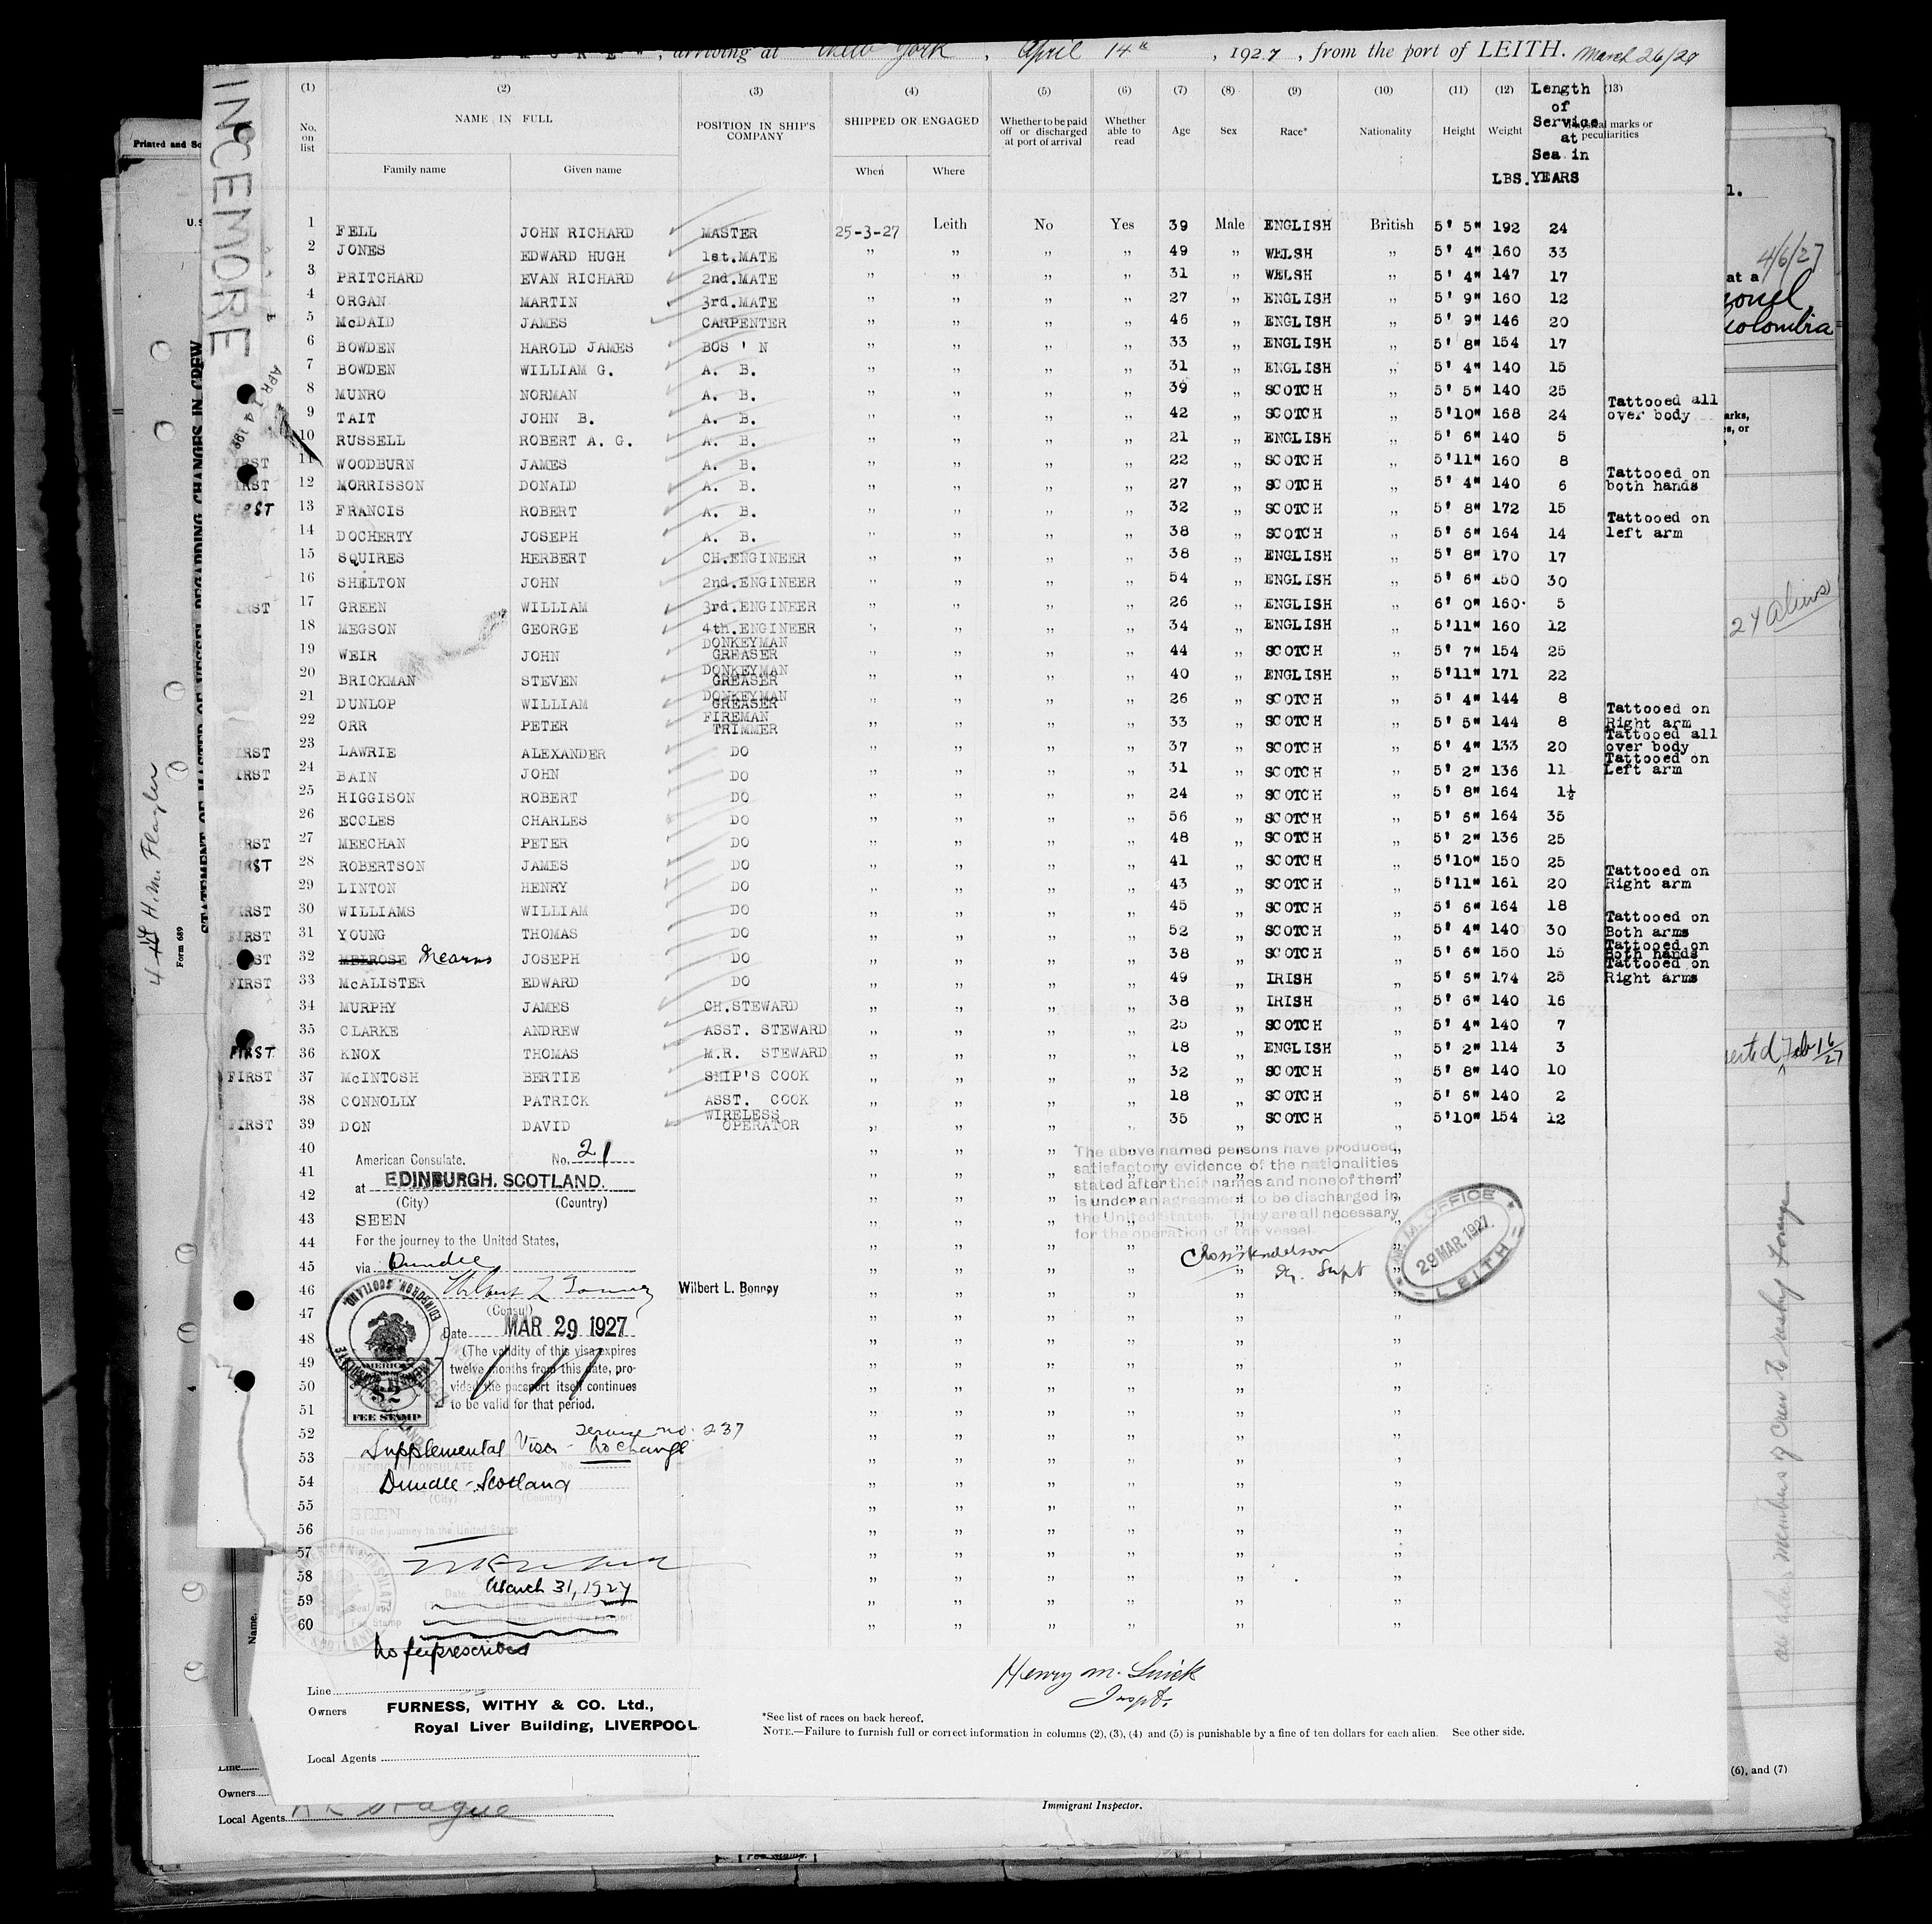 , arriving at New York, April 14th, 1927, from the port of LEITH. March 26/27
(1) (2) (3) (4) (5) (6) (7) (8) (9) (10) (11) (12) Length of Service at Sea in YEARS (13)
No. on list NAME IN FULL POSITION IN SHIP'S COMPANY SHIPPED OR ENGAGED Whether to be paid off or discharged at port of arrival Whether able to read Age Sex Race* Nationality Height Weight LBS. Physical marks or peculiarities
Family name Given name When Where
1 FELL JOHN RICHARD MASTER 25-3-27 Leith No Yes 39 Male ENGLISH British 5' 5" 192 24
2 JONES EDWARD HUGH 1st.MATE " " " " 49 " WELSH " 5' 4" 160 33
3 PRITCHARD EVAN RICHARD 2nd.MATE " " " " 31 " WELSH " 5' 4" 147 17
4 ORGAN MARTIN 3rd.MATE " " " " 27 " ENGLISH " 5' 9" 160 12
5 McDAID JAMES CARPENTER " " " " 46 " ENGLISH " 5' 9" 146 20
6 BOWDEN HAROLD JAMES BOS ' N " " " " 33 " ENGLISH " 5' 8" 154 17
7 BOWDEN WILLIAM G. A. B. " " " " 31 " ENGLISH " 5' 4" 140 15
8 MUNRO NORMAN A. B. " " " " 39 " SCOTCH " 5' 5" 140 25
9 TAIT JOHN B. A. B. " " " " 42 " SCOTCH " 5'10" 168 24 Tattooed all over body
10 RUSSELL ROBERT A. G. A. B. " " " " 21 " ENGLISH " 5' 6" 140 5
FIRST 11 WOODBURN JAMES A. B. " " " " 22 " SCOTCH " 5'11" 160 8
FIRST 12 MORRISSON DONALD A. B. " " " " 27 " SCOTCH " 5' 4" 140 6 Tattooed on both hands
FIRST 13 FRANCIS ROBERT A. B. " " " " 32 " SCOTCH " 5' 8" 172 15
14 DOCHERTY JOSEPH A. B. " " " " 38 " SCOTCH " 5' 6" 164 14 Tattooed on left arm
15 SQUIRES HERBERT CH.ENGINEER " " " " 38 " ENGLISH " 5' 8" 170 17
16 SHELTON JOHN 2nd.ENGINEER " " " " 54 " ENGLISH " 5' 6" 150 30
FIRST 17 GREEN WILLIAM 3rd.ENGINEER " " " " 26 " ENGLISH " 6' 0" 160 5
18 MEGSON GEORGE 4th.ENGINEER " " " " 34 " ENGLISH " 5'11" 160 12
19 WEIR JOHN DONKEYMAN GREASER " " " " 44 " SCOTCH " 5' 7" 154 25
20 BRICKMAN STEVEN DONKEYMAN GREASER " " " " 40 " ENGLISH " 5'11" 171 22
21 DUNLOP WILLIAM DONKEYMAN GREASER " " " " 26 " SCOTCH " 5' 4" 144 8
22 ORR PETER FIREMAN TRIMMER " " " " 33 " SCOTCH " 5' 5" 144 8 Tattooed on Right arm
FIRST 23 LAWRIE ALEXANDER DO " " " " 37 " SCOTCH " 5' 4" 133 20 Tattooed all over body
FIRST 24 BAIN JOHN DO " " " " 31 " SCOTCH " 5' 2" 136 11 Tattooed on Left arm
25 HIGGISON ROBERT DO " " " " 24 " SCOTCH " 5' 8" 164 1½
26 ECCLES CHARLES DO " " " " 56 " SCOTCH " 5' 6" 164 35
FIRST 27 MEECHAN PETER DO " " " " 48 " SCOTCH " 5' 2" 136 25
FIRST 28 ROBERTSON JAMES DO " " " " 41 " SCOTCH " 5'10" 150 25
29 LINTON HENRY DO " " " " 43 " SCOTCH " 5'11" 161 20 Tattooed on Right arm
FIRST 30 WILLIAMS WILLIAM DO " " " " 45 " SCOTCH " 5' 6" 164 18
FIRST 31 YOUNG THOMAS DO " " " " 52 " SCOTCH " 5' 4" 140 30 Tattooed on Both arms
FIRST 32 MELROSE Mearns JOSEPH DO " " " " 38 " SCOTCH " 5' 6" 150 15 Tattooed on Both hands
FIRST 33 McALISTER EDWARD DO " " " " 49 " IRISH " 5' 6" 174 25 Tattooed on Right arms
34 MURPHY JAMES CH.STEWARD " " " " 38 " IRISH " 5' 6" 140 16
35 CLARKE ANDREW ASST. STEWARD " " " " 25 " SCOTCH " 5' 4" 140 7
FIRST 36 KNOX THOMAS M.R. STEWARD " " " " 18 " ENGLISH " 5' 2" 114 3
FIRST 37 McINTOSH BERTIE SHIP'S COOK " " " " 32 " SCOTCH " 5' 8" 140 10
38 CONNOLLY PATRICK ASST. COOK " " " " 18 " SCOTCH " 5' 6" 140 2
FIRST 39 DON DAVID WIRELESS OPERATOR " " " " 35 " SCOTCH " 5'10" 154 12
40
41
42
43
44
45
46
47
48
49
50
51
52
53
54
55
56
57
58
59
60
American Consulate. No. 21
at EDINBURGH. SCOTLAND.
(City) (Country)
SEEN
For the journey to the United States,
via Dundee
Wilbert L. Bonney
(Consul)
Date MAR 29 1927
(The validity of this visa expires
twelve months from this date, pro-
vided the passport itself continues
to be valid for that period.
AMERICAN
$2
FEE STAMP
Service no. 237
Supplemental Visa - No change
Dundee - Scotland
AMERICAN CONSULATE No.
(City) (Country)
SEEN
For the journey to the United States
March 31, 1927
No fee prescribed
The above named persons have produced
satisfactory evidence of the nationalities
stated after their names and none of them
is under an agreement to be discharged in
the United States. They are all necessary
for the operation of the vessel.
Supt
M.M. OFFICE
29 MAR. 1927
LEITH
Henry M.
Inspt.
Line
Owners FURNESS, WITHY & CO. Ltd.,
Royal Liver Building, LIVERPOOL
Local Agents
*See list of races on back hereof.
NOTE.—Failure to furnish full or correct information in columns (2), (3), (4) and (5) is punishable by a fine of ten dollars for each alien. See other side.
INCEMORE
APR 14 192
Printed and
U.S
STATEMENT OF MASTER OF VESSEL REGARDING CHANGES IN CREW
Form 689
H.M. Flagler
Name.
4/6/27
at a
Colombia
24 aliens
Feb 16/27
all alien members of crew
Line
Owners
Local Agents
Immigrant Inspector.
(6), and (7)